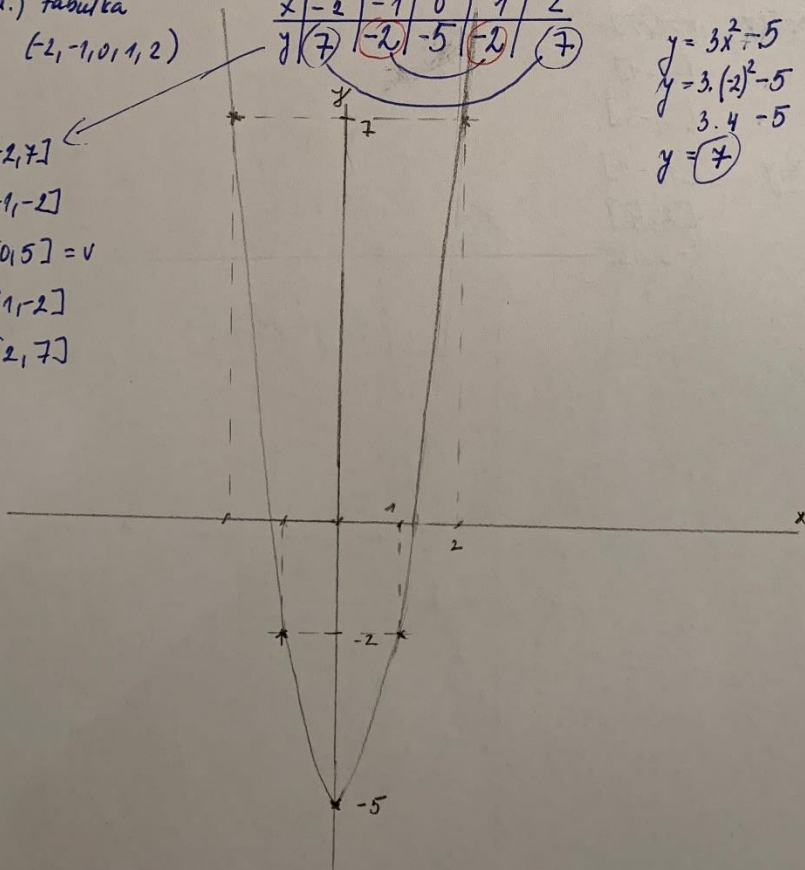 .) tabulka
(-2,-1,0,1,2)
x | -2 | -1 | 0 | 1 | 2
y | 7 | -2 | -5 | -2 | 7
y = 3x² - 5
y = 3.(-2)² - 5
3.4 - 5
y = 7
2,7]
1,-2]
0,5] = v
1,-2]
2,7]
y
7
1
2
x
-2
-5